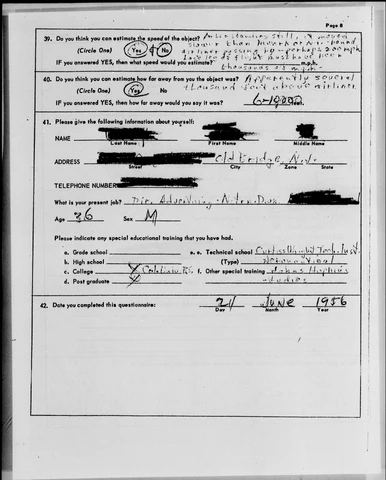 Page 8
39. Do you think you can estimate the speed of the object? After standing still, it moved
(Circle One) Yes & No slower than Northbound
airliner passing by - perhaps 200 mph
IF you answered YES, then what speed would you estimate? must have been m.p.h.
thousands of mph
40. Do you think you can estimate how far away from you the object was? Apparently several
(Circle One) Yes No thousand feet above airliner
IF you answered YES, then how far away would you say it was?
41. Please give the following information about yourself:
NAME
Last Name First Name Middle Name
ADDRESS Old Bridge, N.J.
Street City Zone State
TELEPHONE NUMBER
What is your present job? Dir. Advertising
Age 36 Sex M
Please indicate any special educational training that you have had.
a. Grade school e. Technical school Curtiss Wright Tech. Inst.
b. High school (Type) Aeronautical
c. College X f. Other special training Johns Hopkins
d. Post graduate X studies
42. Date you completed this questionnaire: 21 June 1956
Day Month Year